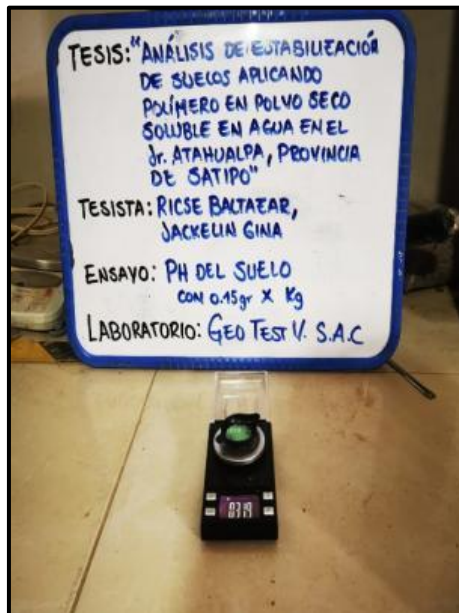 TESIS: "ANÁLISIS DE ESTABILIZACIÓN
DE SUELOS APLICANDO
POLÍMERO EN POLVO SECO
SOLUBLE EN AGUA EN EL
Jr. ATAHUALPA, PROVINCIA
DE SATIPO"
TESISTA: RICSE BALTAZAR,
JACKELIN GINA
ENSAYO: PH DEL SUELO
CON 0.15gr X Kg
LABORATORIO: GEO TEST V. S.A.C
0.319